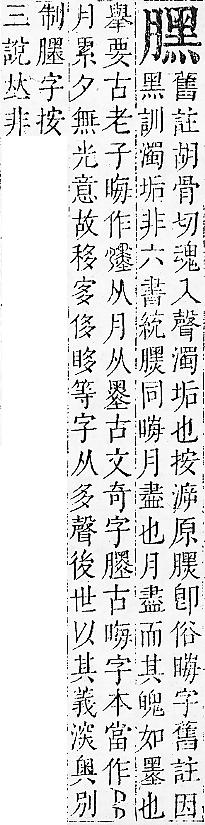 舊註胡骨切魂入聲濁垢也按㴑原卽俗晦字舊註因
黑訓濁垢非六書統同晦月盡也月盡而其魄如墨也
舉要古老子晦作从月从墨古文奇字古晦字本當作
月累夕無光意故移㝖侈眵等字从多聲後世以其義深奧別
制字按
三說𠀤非